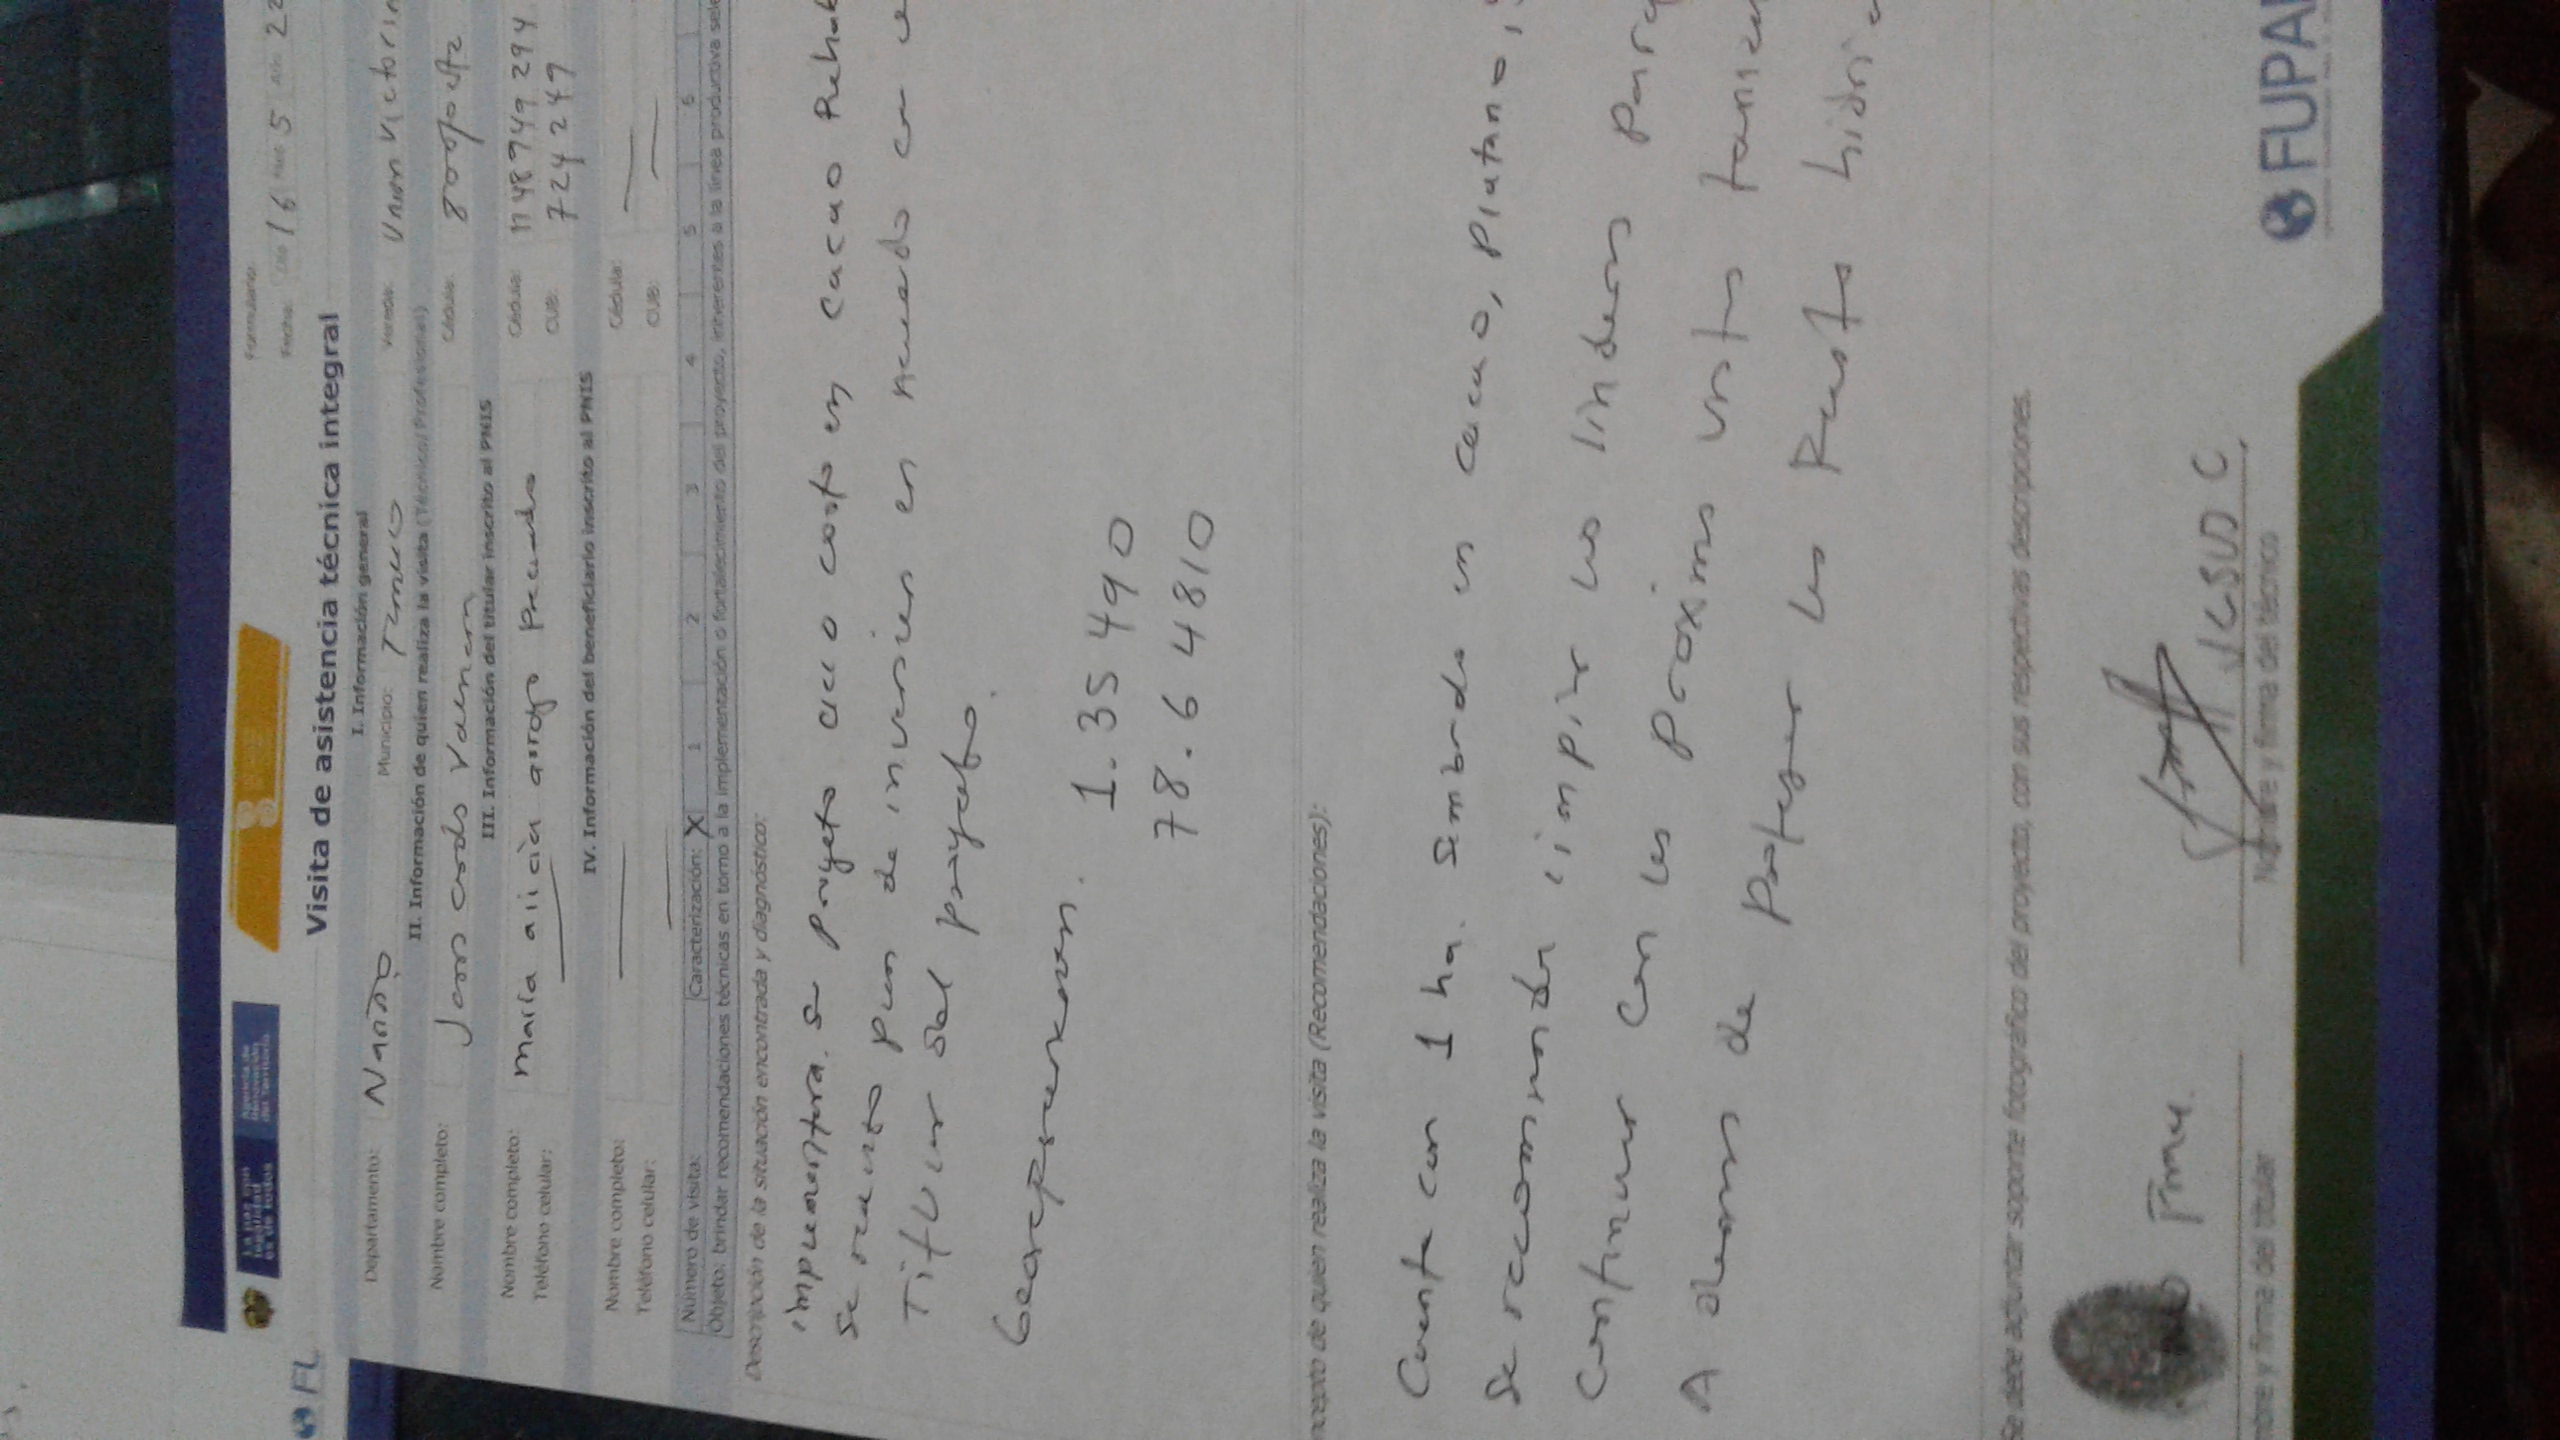 Formulario:
Fecha: Día 16 Mes 5 Año 22
La paz con legalidad es de todos
Agencia de Renovación del Territorio
FL
Visita de asistencia técnica integral
I. Información general
Departamento: Nariño Municipio: Tumaco Vereda: Union Victorin
II. Información de quien realiza la visita (Técnico/Profesional)
Nombre completo: Cédula:
III. Información del titular inscrito al PNIS
Nombre completo: maria alicia arroyo Preciado Cédula:
Teléfono celular: CUB: 724247
IV. Información del beneficiario inscrito al PNIS
Nombre completo: Cédula:
Teléfono celular: CUB:
Número de visita: Caracterización: X 1 2 3 4 5 6
Objeto: brindar recomendaciones técnicas en torno a la implementación o fortalecimiento del proyecto, inherentes a la línea productiva sele
Descripción de la situación encontrada y diagnóstico:
implementara su proyecto ciclo corto en cacao Rehab
Se realizo plan de inversion en acuerdo con
Tificar del proyecto.
1.35490
78.64810
ncepto de quien realiza la visita (Recomendaciones):
Cuenta con 1 ha. Sembrada en cacao, Platano,
Se recomienda limpiar los linderos para
Continuar con las Proximas visitas
A demas de Proteger los Recursos hidric
Se debe adjuntar soporte fotográfico del proyecto, con sus respectivas descripciones.
Firma
Jesus C
mbre y firma del titular Nombre y firma del técnico
FUPA